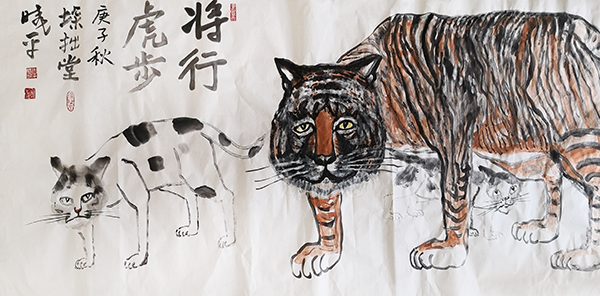 将行
虎步
庚子秋
拙堂
晓平